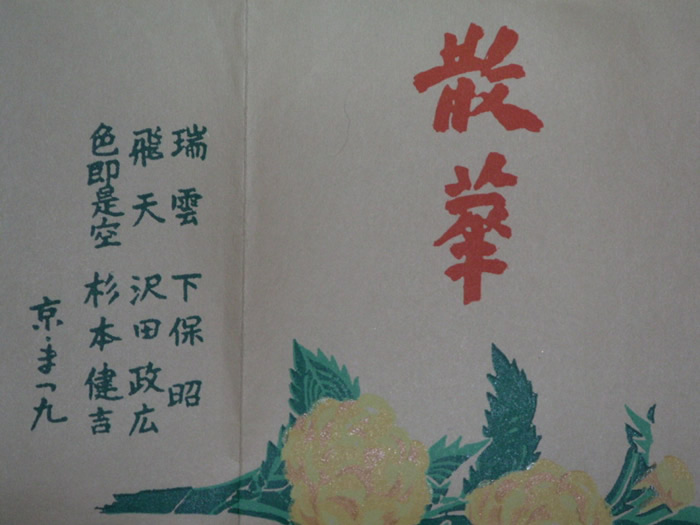 散華
瑞雲 下保 昭
飛天 沢田政広
色即是空 杉本健吉